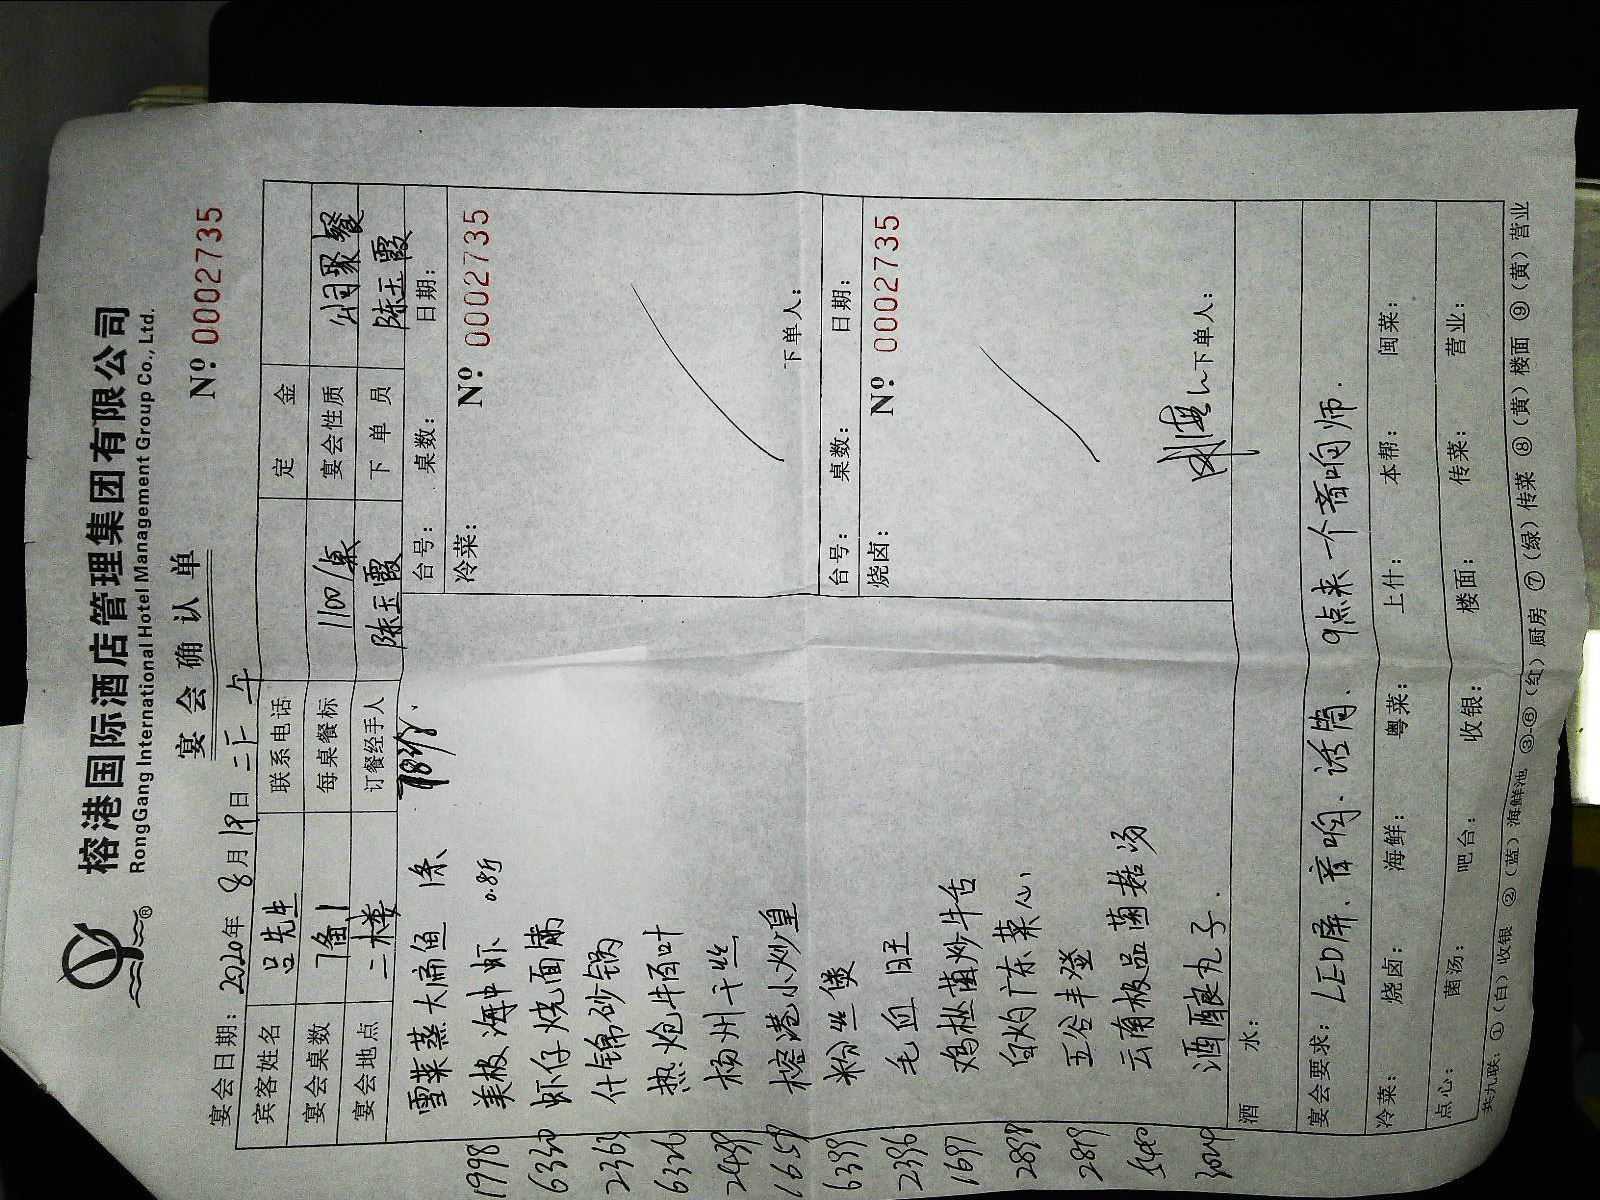 榕港国际酒店管理集团有限公司
RongGang International Hotel Management Group Co., Ltd.
®
宴会确认单
Nº 0002735
宴会日期：2020年8月19日 二 午
宾客姓名 吕先生 联系电话 定金
宴会桌数 7备1 每桌餐标 1100/桌 宴会性质 公司聚餐
宴会地点 二楼 订餐经手人 陈玉霞 下单员 陈玉霞
台号： 桌数： 日期：
冷菜： Nº 0002735
下单人：
台号： 桌数： 日期：
烧卤： Nº 0002735
下单人：
雪菜蒸大扁鱼 1条
1998 美极海中虾 0.8斤
6350 虾仔烧面脯
2363 什锦砂锅
6326 热炝牛百叶
2439 杨州干丝
1659 榕港小炒皇
6399 粉丝煲
2396 毛血旺
1697 鸡枞菌炒牛舌
2898 白灼广东菜心
2819 五谷丰登
云南极品菌菇汤
酒酿丸子.
酒水：
宴会要求： LED屏、音响、话筒、9点来一个音响师.
冷菜： 烧卤： 海鲜： 粤菜： 上什： 本帮： 闽菜：
点心： 菌汤： 吧台： 收银： 楼面： 传菜： 营业：
共九联：①（白）收银 ②（蓝）海鲜池 ③-⑥（红）厨房 ⑦（绿）传菜 ⑧（黄）楼面 ⑨（黄）营业